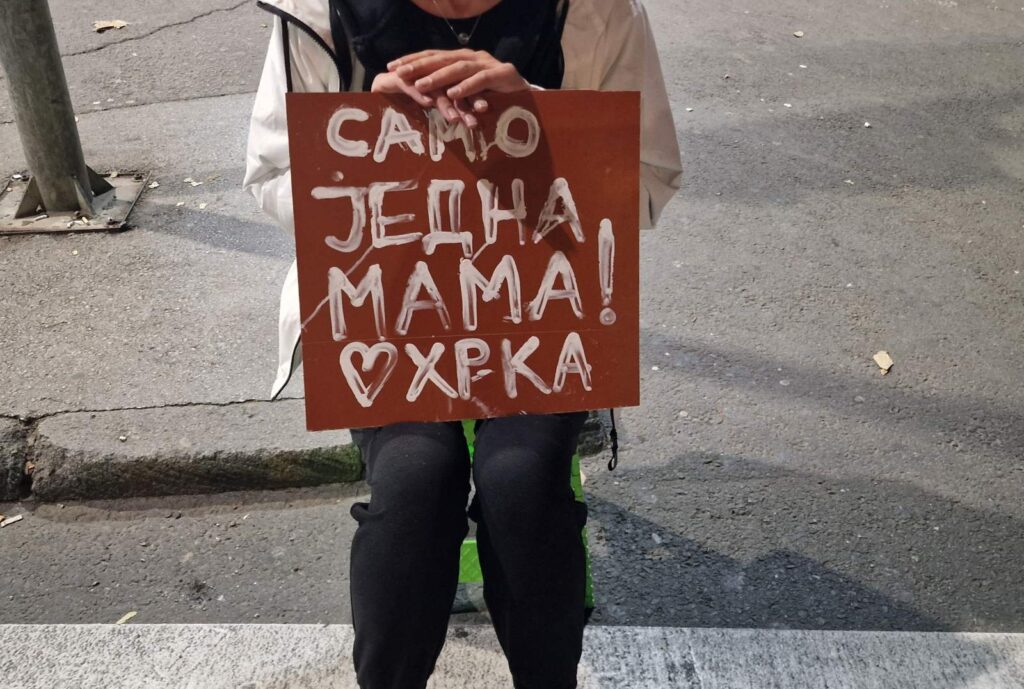 САМО
ЈЕДНА
МАМА!
♡ХРКА